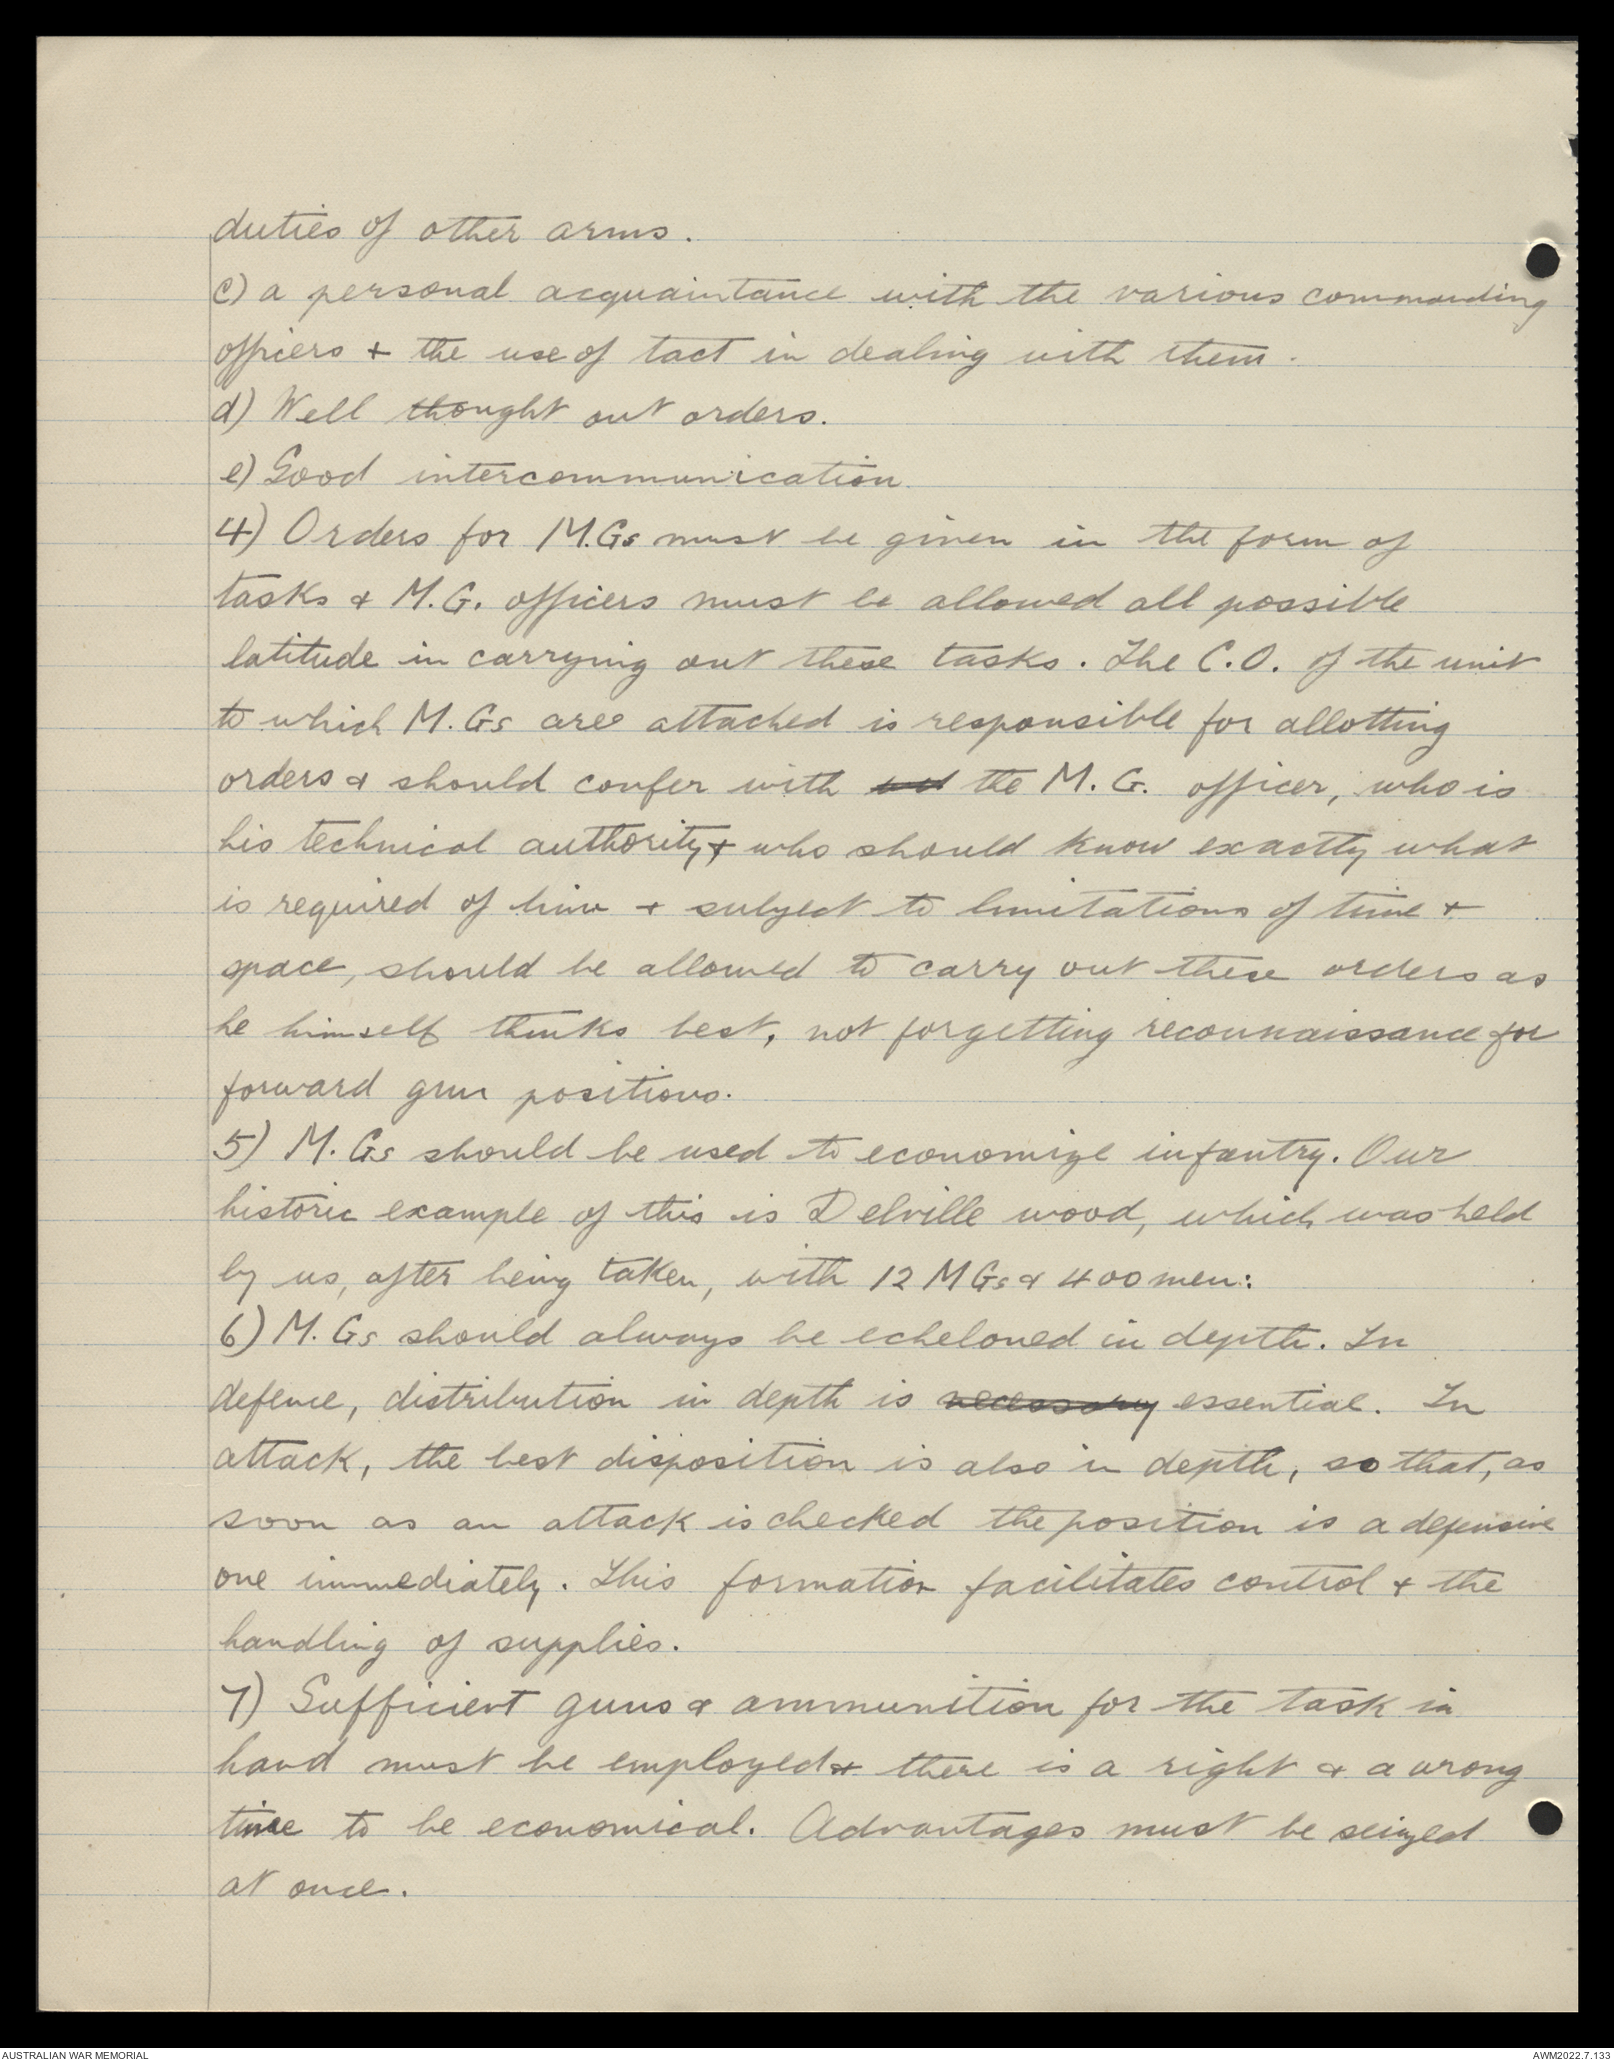 duties of other arms.
c) a personal acquaintance with the various commanding
officers + the use of tact in dealing with them.
d) Well thought out orders.
e) Good intercommunication.
4) Orders for M.Gs must be given in the form of
tasks & M.G. officers must be allowed all possible
latitude in carrying out these tasks. The C.O. of the unit
to which M.Gs are attached is responsible for allotting
orders & should confer with the M.G. officer, who is
his technical authority, + who should know exactly what
is required of him + subject to limitations of time +
space, should be allowed to carry out these orders as
he himself thinks best, not forgetting reconnaissance for
forward gun positions.
5) M.Gs should be used to economize infantry. Our
historic example of this is Delville wood, which was held
by us, after being taken, with 12 MGs & 400 men:
6) M.Gs should always be echeloned in depth. In
defence, distribution in depth is necessary essential. In
attack, the best disposition is also in depth, so that, as
soon as an attack is checked the position is a defensive
one immediately. This formation facilitates control + the
handling of supplies.
7) Sufficient guns & ammunition for the task in
hand must be employed & there is a right & a wrong
time to be economical. Advantages must be seized
at once.
AUSTRALIAN WAR MEMORIAL
AWM2022.7.133